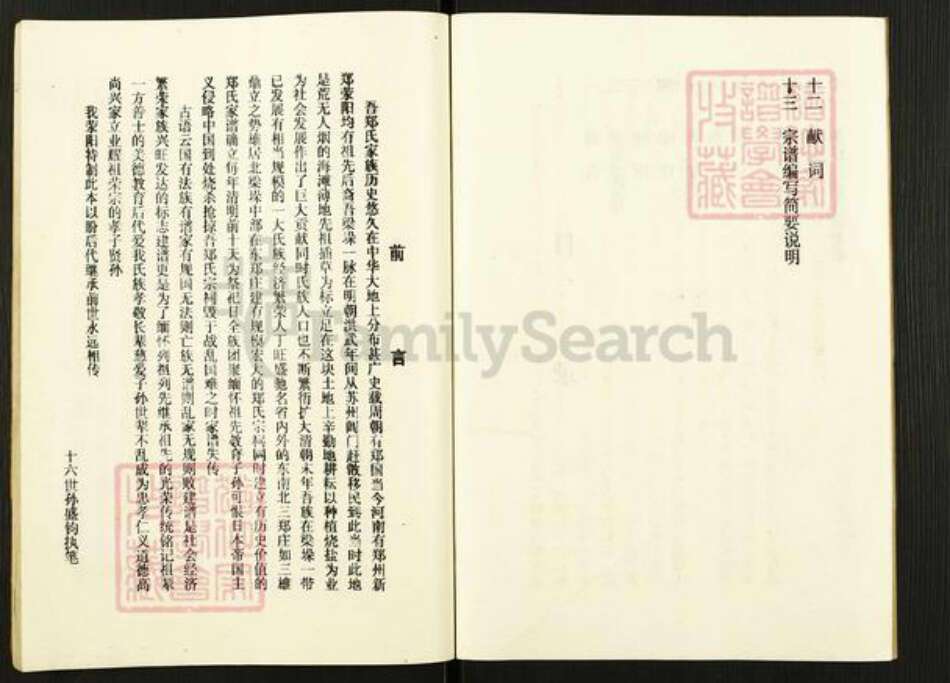 十二　献　词
十三　宗谱编写简要说明
前　言
吾郑氏家族历史悠久在中华大地上分布甚广史载周朝有郑国当今河南有郑州新
郑荥阳均有祖先后裔吾梁垛一脉在明朝洪武年间从苏州阊门赶散移民到此当时此地
是荒无人烟的海滩薄地先祖插草为标立足在这块土地上辛勤地耕耘以种植烧盐为业
为社会发展作出了巨大贡献同时氏族人口也不断繁衍扩大清朝末年吾族在梁垛一带
已发展有相当规模的一大氏族经济繁荣人丁旺盛驰名省内外的东南北三郑庄如三雄
鼎立之势雄居北梁垛中部在东郑庄建有规模宏大的郑氏宗祠同时建立有历史价值的
郑氏家谱确立每年清明前十天为祭祀日全族团聚缅怀祖先教育子孙可恨日本帝国主
义侵略中国到处烧杀抢掠吾郑氏宗祠毁于战乱国难之时家谱失传
古语云国有法族有谱家有规国无法则亡族无谱则乱家无规则败建谱是社会经济
繁荣家族兴旺发达的标志建谱更是为了缅怀列祖列先继承祖先的光荣传统铭记祖辈
一方善士的美德教育后代爱我氏族孝敬长辈慈爱子孙世辈不乱成为忠孝仁义道德高
尚兴家立业辉祖荣宗的孝子贤孙
我荥阳特制此本以盼后代继承前世永远相传
十六世孙盛钧执笔
FamilySearch